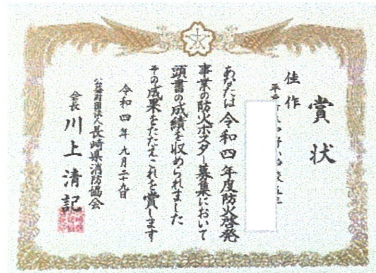 賞状
佳作
あなたは令和四年度防火啓発
事業の防火ポスター募集において
頭書の成績を収められました
その成果をたたえこれを賞します
令和四年九月二十九日
公益財団法人長崎県消防協会
会長 川上清記